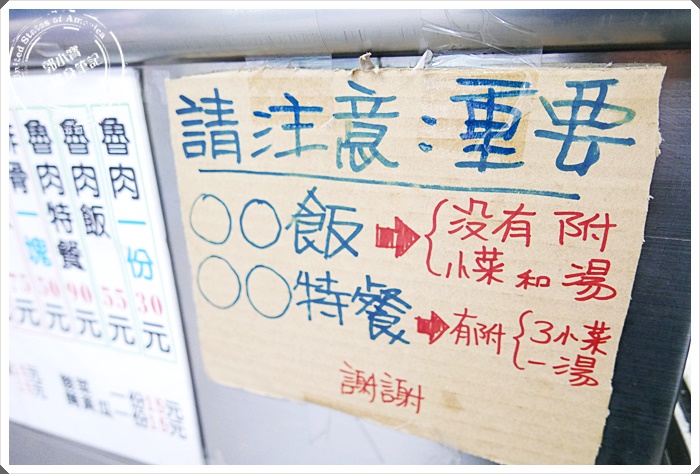 請注意:重要
○○飯 → { 没有附
小菜和湯
○○特餐 → 有附 { 3小菜
一湯
謝謝
魯肉一份30元
魯肉飯55元
魯肉特餐90元
一塊50元
一份15元
一份15元
United States of America